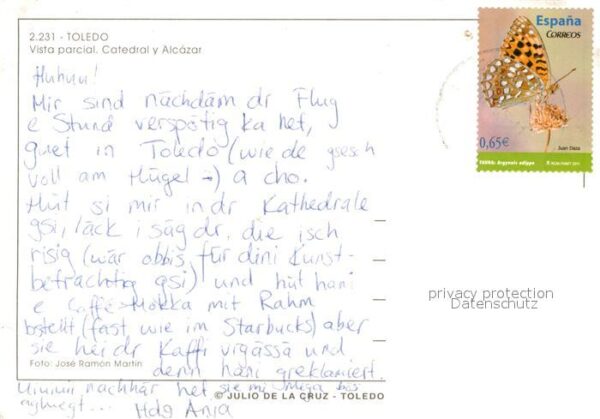 2.231 - TOLEDO
Vista parcial. Catedral y Alcázar
Huhuu!
Mir sind nächdäm dr Flug
e Stund verspötig ka het,
guet in Toledo (wie de gsesch
voll am Hügel :-) a cho.
Hüt si mir in dr Kathedrale
gsi, läck i säg dr, die isch
risig (wär öbbis für dini Kunst-
betrachtig gsi) und hüt hani
e Caffè-Mokka mit Rahm
bstellt (fast wie im Starbucks) aber
sie hei dr Kaffi vrgässä und
denn hani greklamiert.
nachhär het sie mi mega bös
... Hdg Anja
Foto: José Ramón Martín
© JULIO DE LA CRUZ - TOLEDO
España
CORREOS
0,65€
Juan Daza
FAUNA: Argynnis adippe
privacy protection
Datenschutz